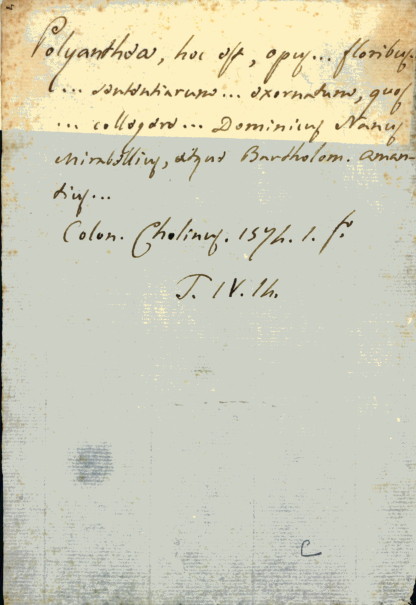 Polyanthea, hoc est, opus... floribus
... sententiarum... exornatum, quos
... collegere... Dominicus Nanus
Mirabellius, atque Bartholom. Aman-
tius...
Colon. Cholinus. 1574. 1. f°.
T. IV. 14.
C